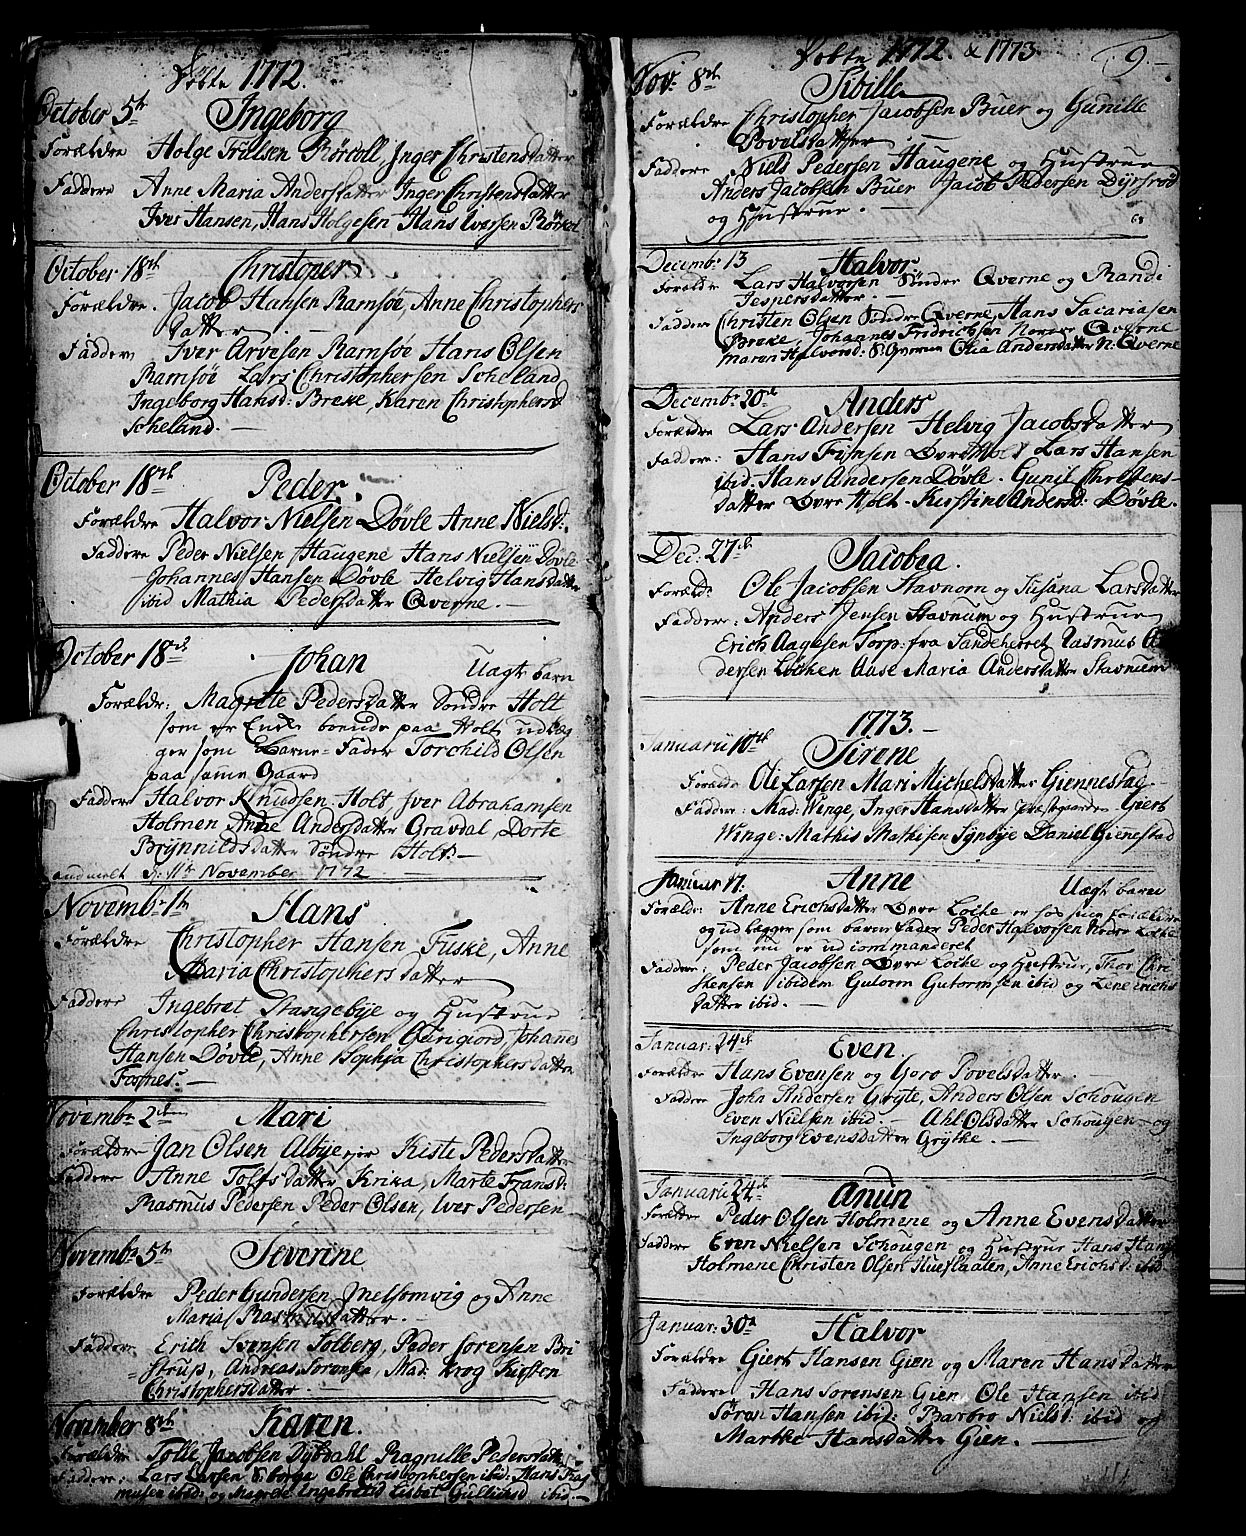 Døbte 1772.
October 5te Ingeborg
Forældre Holge Trulsen Rörcoll, Inger Christensdatter
Faddere Anne Maria Andersdatter Inger Christensdatter
Iver Hansen, Hans Holgesen Hans Iversen Rörkol
October 18de Christoper
Forældre. Jacob Hansen Ramsöe, Anne Christophers
datter. —
Faddere Iver Arvesen Ramsöe Hans Olsen
Ramsöe Lars Christophersen Scheland
Ingeborg Hansd: Breke, Karen Christophersd
Scheland. —
October 18de Peder.
Forældre Halvor Nielsen Døvle Anne Nielsd:
Faddere Peder Nielsen Haugene Hans Nielsen Døvle
Johannes Hansen Døvle Helvig Hansdatter
ibid Mathia Pedersdatter Qverne. —
October 18de Johan Uægte barn
Forældr: Magrete Pedersdatter Søndre Holt
som er Enke boende paa Holt, udlæg
ger som Barne-Fader Torchild Olsen
paa samme Gaard
Faddere Halvor Knudsen Holt Iver Abrahamsen
Holmen Anne Andersdatter Gravdal, Dorte
Brynnildsdatter Søndre Holt. —
anmeldt d: 11te November 1772
Novembr 1te Hans
Forældre Christopher Hansen Fuske, Anne
Maria Christophersdatter
Faddere Ingebret Stangebye og Hustrue
Christopher Christophersen Aarigiord, Johannes
Hansen Døvle, Anne Sophia Christophersdatter
Foynes. —
Novembr 2den Mari
Forældre Jan Olsen Albye Kisti Pedersdatter
Faddere Anne Tolfsdatter Krika, Marte Fransd:
Rasmus Pedersen Peder Olsen, Iver Pedersen
Novembr 5te Severine
Forældre Peder Gundersen Melsomvig og Anne
Maria Rasmusdatter. —
Faddere Erich Svensen Solberg, Peder Sorensen Bri
struß, Andreas Soronske, Mad: Krog Kirsten
Christophersdatter. —
November 8de Karen.
Forældre Tolle Jacobsen Dybdahl Ragnille Pedersdatter
Faddere: Lars Larsen S: borge Ole Christophersen ibid: Hans Ras
musen ibid: og Magrete Ingebretsd Lisbet Gullichsd ibid. —
Døbte 1772. & 1773. 9. —
Nov: 8de Sibille
Forældre Christopher Jacobsen Buer og Gunille
Povelsdatter
Faddere Niels Pedersen Haugene og Hustrue
Anders Jacobsen Buer Jacob Pedersen Dyrsrød
og Hustrue. —
Decembr 13 Halvor
Forældr Lars Halvorsen Söndre Qverne og Randi
Jespersdatter. —
Faddere Christen Olsen Söndre Qverne, Hans Sacariasen
Breke, Johannes Fredrichsen Norrer Qverne
Maren Halvorsd: S: Qverne Olia Andersdatter N: Qverne
Decembr 20de Anders
Forældre Lars Andersen Helvig Jacobsdatter
Faddere: Hans Finsen Övre Holt Lars Hansen
ibid: Hans Andersen Døvle. Gunil Christens-
datter Øvre Holt. Kirstine Andersd: Døvle.
Dec: 27de Jacobea.
Foræld: Ole Jacobsen Stavnom og Susana Larsdatter
Faddere: Anders Jensen Stavnum og Hustrue
Erich Aagesen Torp: fra Sandeherret Rasmus An
dersen Løcken Aase Maria Andersdatter Stavnum
1773. —
Januarii 10de Sirene
Forældre Ole Larsen Mari Michelsdatter Giennestag
Faddere: Mad: Winge, Inger Hansdatter præstgaarden Giert
Winge: Mathis Mathisen Synbye Daniel Gienestad
Januar 17. Anne Uægt barn
Forældr: Anne Erichsdatter Øvre Løcke er hos sine forældre
og udlægger som barne fader Peder Halvorsen Nedre Løcke
som nu er ud commanderet
Faddere: Peder Jacobsen Øvre Løcke og Hustrue, Thor Chri
stensen ibidem Gutorm Gutormsen ibid og Lene Erichs
datter ibid. —
Januar: 24de Even
Forældre Hans Evensen og Goro Povelsdatter. —
Faddere John Andersen Grøyte, Anders Olsen Schougen
Even Nielsen ibid. — Ahl: Olsdatter Schougen og
Ingeborg Evensdatter Grytke. —
Januarii 24de Anun
Forældre Peder Olsen Holmene og Anne Evensdatter
Faddere Even Nielsen Schougen og Hustrue Hans Hans
Holmene Christen Olsen Hueflaaten, Anne Erichsd: ibid
Januar: 30te Halvor
Forældre Giert Hansen Gien og Maren Hansdatter
Faddere Hans Sorensen Gien, Ole Hansen ibid
Søren Hansen ibid: Barbro Nielsd: ibid og
Marthe Hansdatter Gien. —